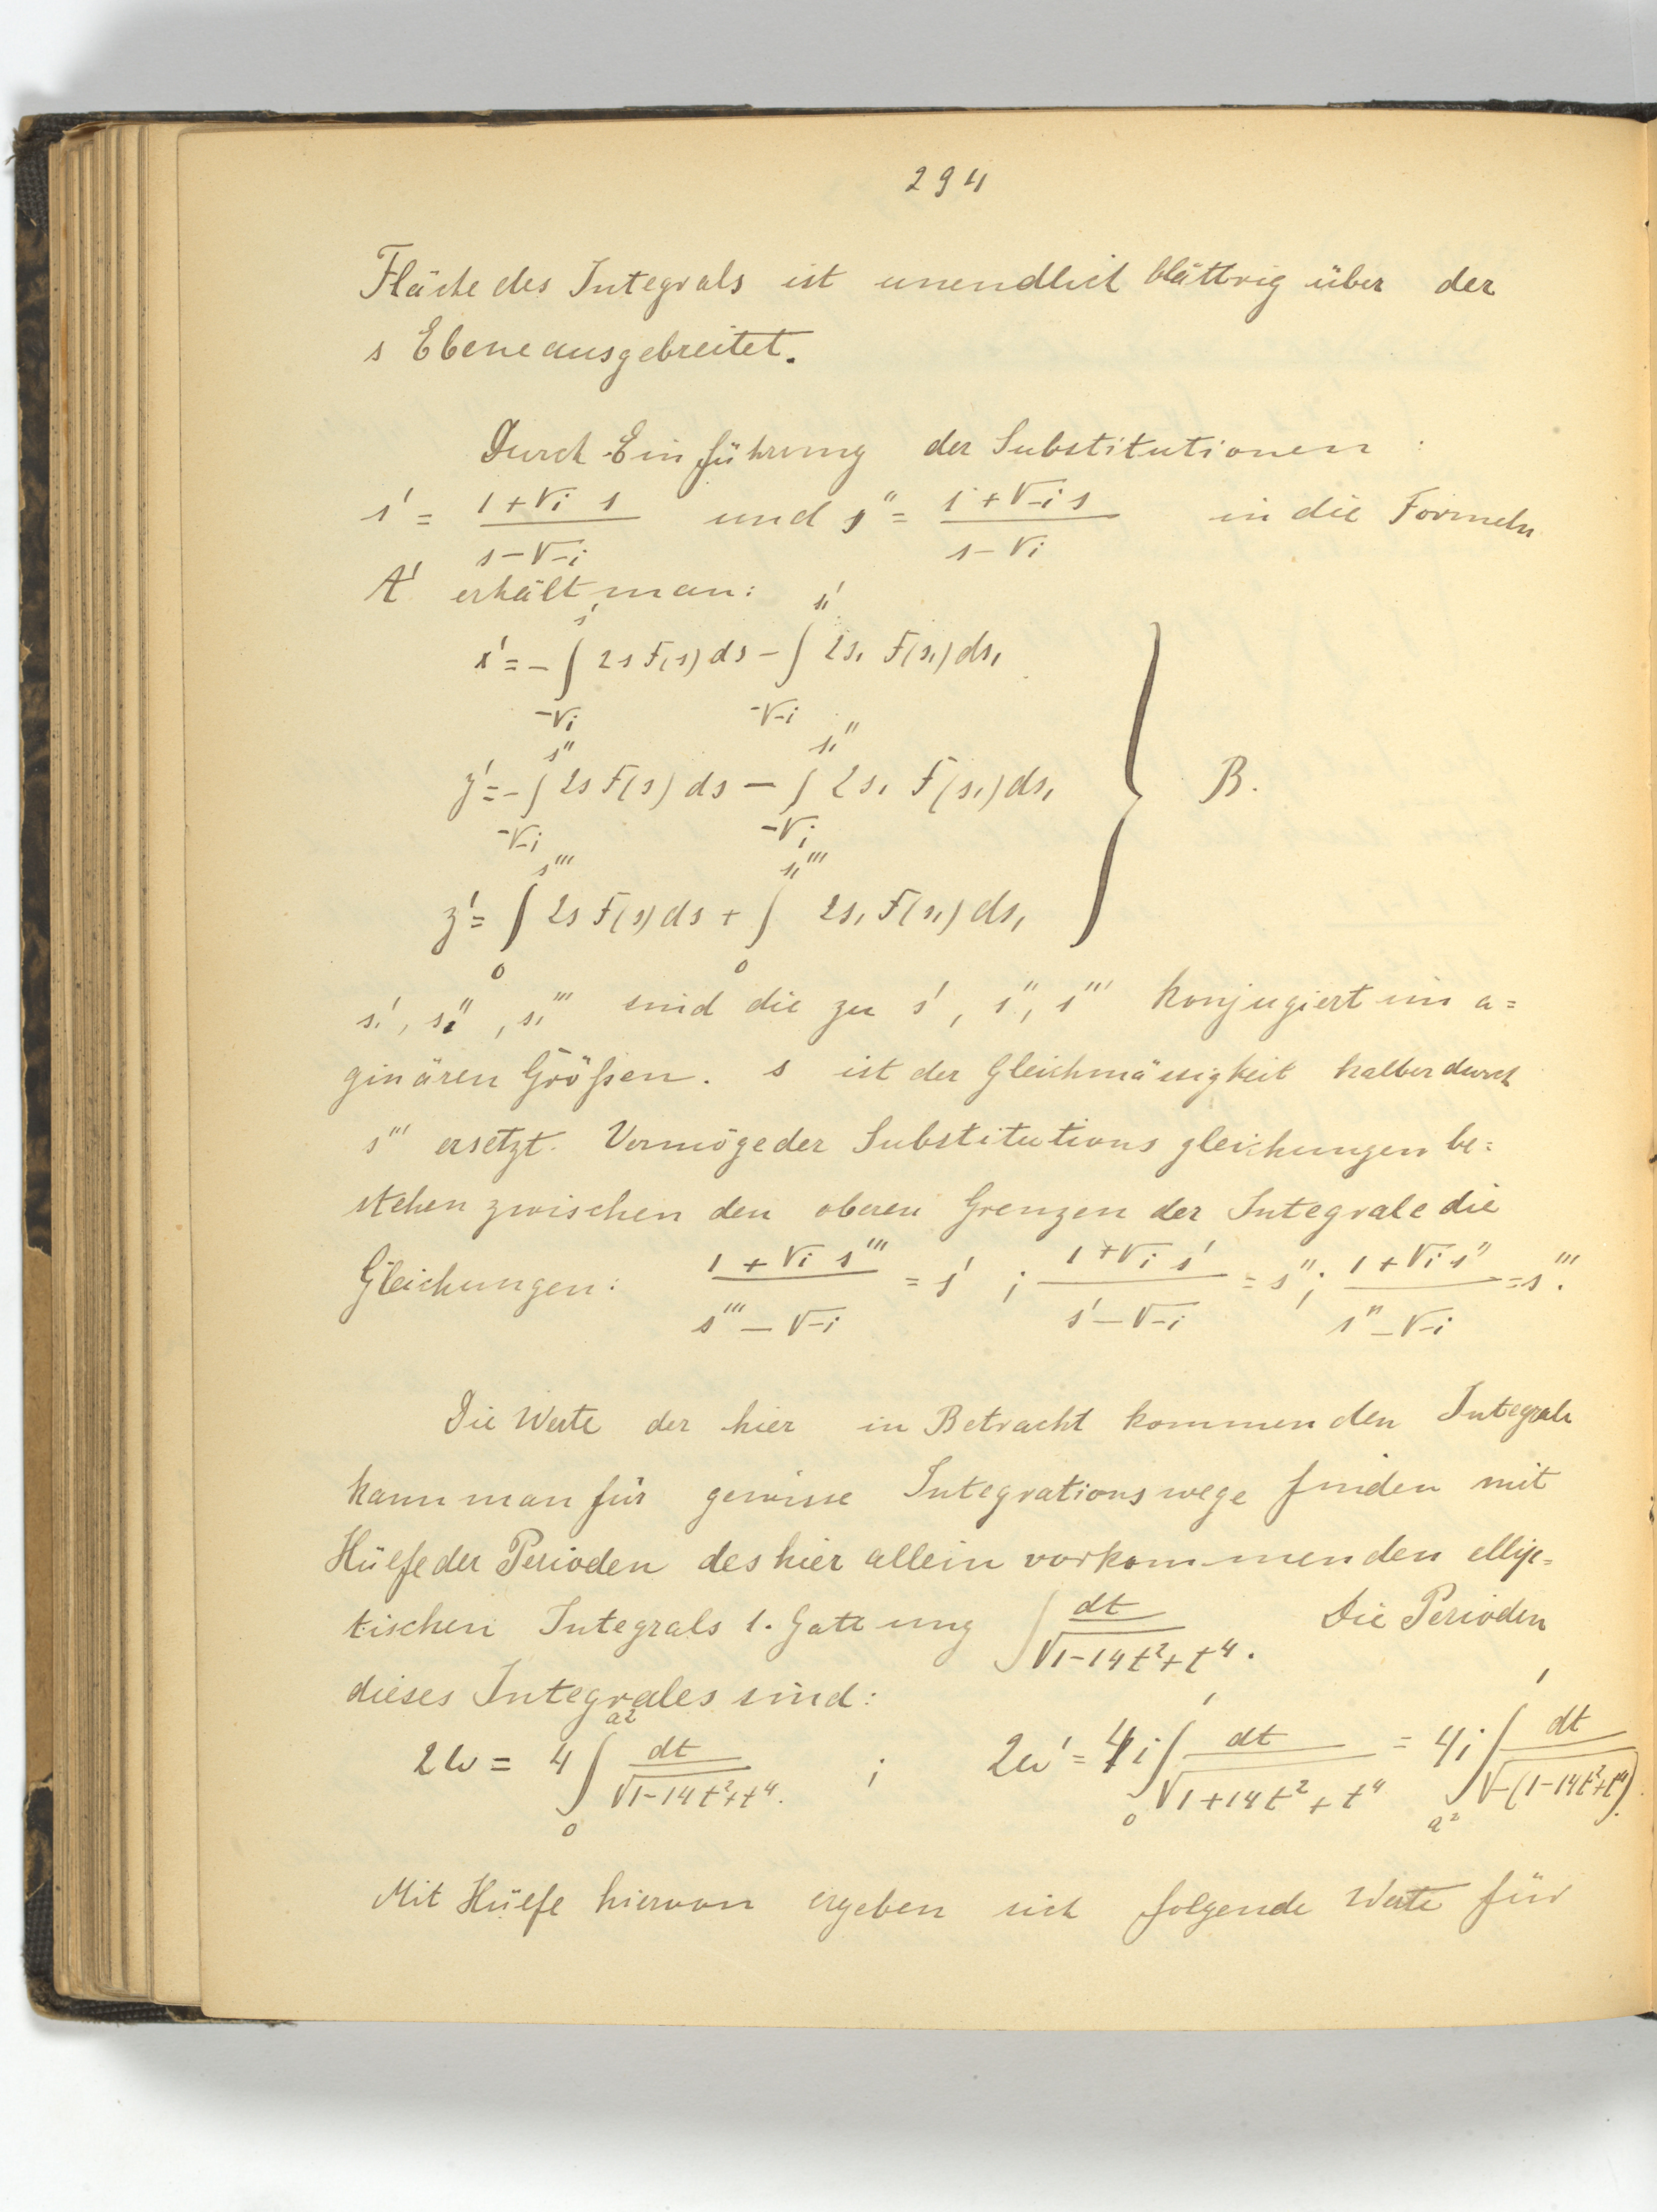 294
Fläche des Integrals ist unendlich blättrig über der
s Ebene ausgebreitet.
Durch Einführung der Substitutionen :
s' = (1+√i s)/(s-√-i) und s'' = (1+√-i s)/(s-√i) in die Formeln
A' erhält man:
x' = - ∫_{-√i}^{s'} 2s F(s) ds - ∫_{-√-i}^{s₁'} 2s₁ F(s₁) ds₁
y' = - ∫_{-√-i}^{s''} 2s F(s) ds - ∫_{-√i}^{s₁''} 2s₁ F(s₁) ds₁ } B.
z' = ∫_0^{s'''} 2s F(s) ds + ∫_0^{s₁'''} 2s₁ F(s₁) ds₁
s₁', s₁'', s₁''' sind die zu s', s'', s''' konjugiert im a=
ginären Größen. s ist der Gleichmässigkeit halber durch
s''' ersetzt. Vermöge der Substitutions gleichungen be=
stehen zwischen den oberen Grenzen der Integrale die
Gleichungen: (1+√i s''')/(s'''-√-i) = s' ; (1+√i s')/(s'-√-i) = s''; (1+√i s'')/(s''-√-i) = s'''.
Die Werte der hier in Betracht kommenden Integrale
kann man für gewisse Integrationswege finden mit
Hülfe der Perioden des hier allein vorkommenden ellip=
tischen Integrals 1. Gattung ∫ dt/√(1-14t²+t⁴). Die Perioden
dieses Integrales sind:
2ω = 4 ∫_0^{a²} dt/√(1-14t²+t⁴). ; 2ω' = 4i ∫_0^1 dt/√(1+14t²+t⁴) = 4i ∫_{a²}^1 dt/√(-(1-14t²+t⁴)).
Mit Hülfe hiervon ergeben sich folgende Werte für